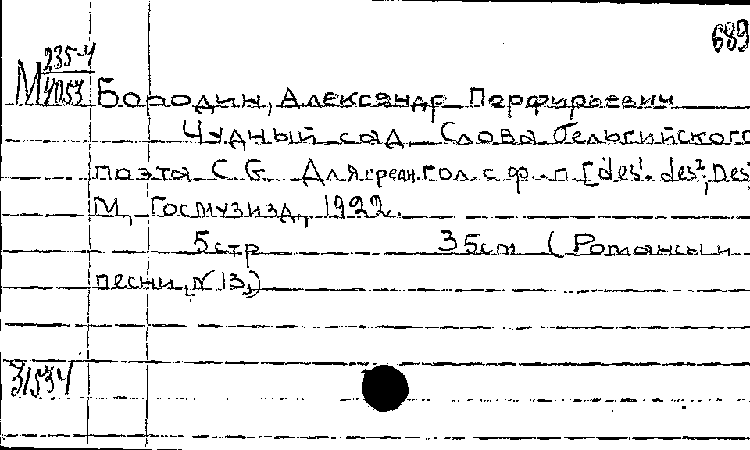 689
М 235-4
4053
Бородин, Александр Порфирьевич
Чудный сад. Слова бельгийского
поэта С. G. Для средн. гол. с ф.-п. [des¹. des², Des
М., Госмузизд., 1922.
5 стр 35 см (Романсы и
песни, № 13,)
31534